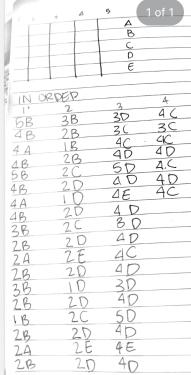 1 of 1
A
B
C
D
E
IN ORDER
1 2 3 4
5B 3B 3D 4C
4B 2B 3C 3C
4A 1B 4C 4C
4B 2B 4D 4D
5B 2C 5D 4C
4B 2D 4D 4D
4A 1D 4E 4C
4B 2D 4D
3B 2C 3D
2B 2D 4D
2A 2E 4C
2B 2D 4D
3B 1D 3D
2B 2D 4D
1B 2C 5D
2B 2D 4D
2A 2E 4E
2B 2D 4D